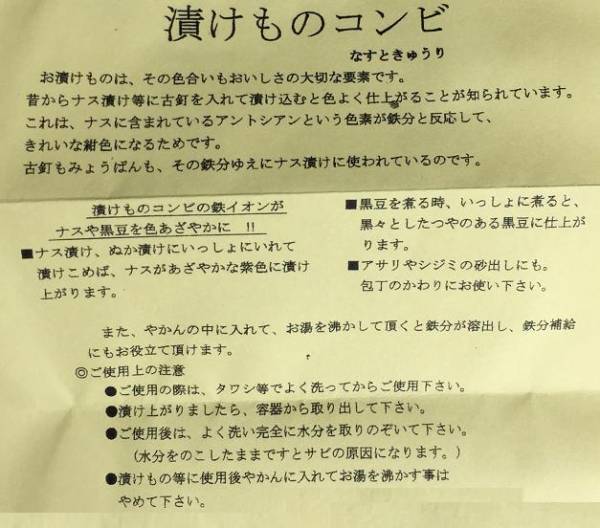 漬けものコンビ
なすときゅうり
お漬けものは、その色合いもおいしさの大切な要素です。
昔からナス漬け等に古釘を入れて漬け込むと色よく仕上がることが知られています。
これは、ナスに含まれているアントシアンという色素が鉄分と反応して、
きれいな紺色になるためです。
古釘もみょうばんも、その鉄分ゆえにナス漬けに使われているのです。
漬けものコンビの鉄イオンが
ナスや黒豆を色あざやかに !!
■ナス漬け、ぬか漬けにいっしょにいれて
漬けこめば、ナスがあざやかな紫色に漬け
上がります。
■黒豆を煮る時、いっしょに煮ると、
黒々としたつやのある黒豆に仕上が
ります。
■アサリやシジミの砂出しにも。
包丁のかわりにお使い下さい。
また、やかんの中に入れて、お湯を沸かして頂くと鉄分が溶出し、鉄分補給
にもお役立て頂けます。
◎ご使用上の注意
●ご使用の際は、タワシ等でよく洗ってからご使用下さい。
●漬け上がりましたら、容器から取り出して下さい。
●ご使用後は、よく洗い完全に水分を取りのぞいて下さい。
(水分をのこしたままですとサビの原因になります。)
●漬けもの等に使用後やかんに入れてお湯を沸かす事は
やめて下さい。